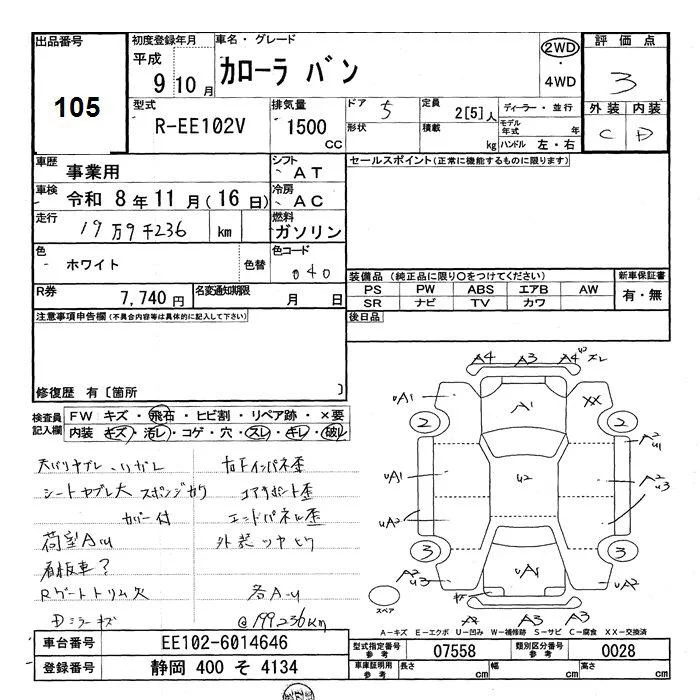 出品番号
105
初度登録年月
平成
9年10月
車名・グレード
カローラ バン
2WD
・
4WD
評価点
3
外装 内装
C D
型式
R-EE102V
排気量
1500
CC
ドア 5
形状
定員 2[5]人
積載 kg
ディーラー・並行
モデル年式 年
ハンドル 左・右
車歴 事業用
シフト AT
セールスポイント(正常に機能するものに限ります)
車検 令和 8年11月(16日)
冷房 AC
走行 19万9千236 km
燃料 ガソリン
色 ホワイト 色替
色コード 040
装備品(純正品に限り○をつけてください)
PS PW ABS エアB AW
SR ナビ TV カワ
新車保証書
有・無
R券 7,740円
名変通知期限 月 日
後日品
注意事項申告欄(不具合内容等は具体的に記入して下さい)
修復歴 有〔箇所 〕
検査員記入欄
FW キズ・飛石・ヒビ割・リペア跡・×要
内装 キズ・汚レ・コゲ・穴・スレ・キレ・破レ
天バリヤブレ・
右Fインパネ歪
シートヤブレ大 スポンジカケ
コアサポート歪
カバー付
エンドパネル歪
荷室AU
外装ツヤヒケ
看板車?
Rゲートトリム欠
各A-U
Dミラーキズ
@199,236km
A4 A3 A4
UA1 A1 XX
2 2
UA1 U2
UA2
3 3
UA1 UA2
スペア
A3 A3
A-キズ E-エクボ U-凹み W-補修跡 S-サビ C-腐食 XX-交換済
車台番号 EE102-6014646
登録番号 静岡 400 そ 4134
型式指定番号 参考 07558
類別区分番号 参考 0028
車庫証明用 参考 長さ cm 幅 cm 高さ cm